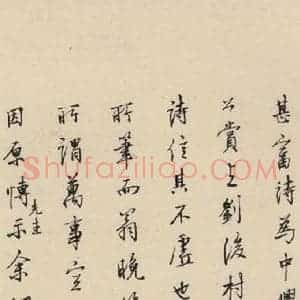 甚富詩為中興
公賞工劉後村
詩信其不虛也
所筆而翁晚
所謂萬事定
因原博先生示余
Shufaziliao.com